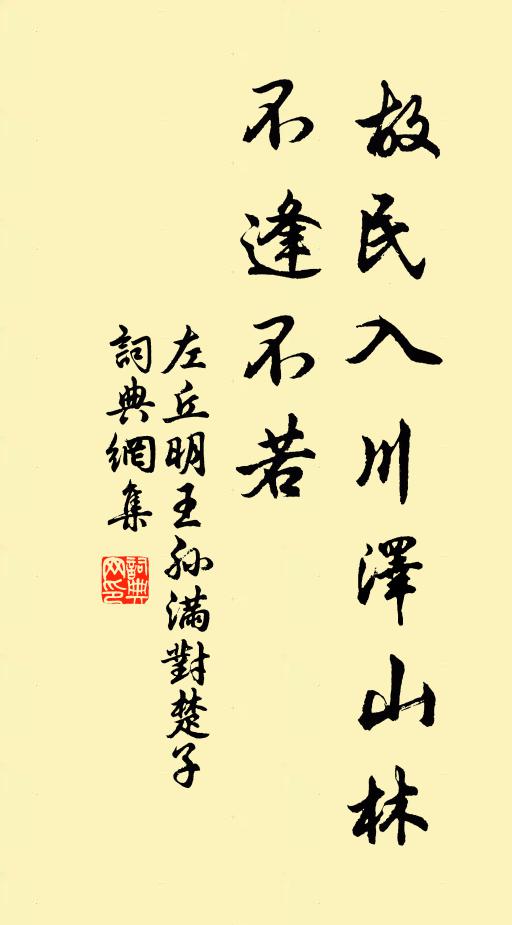 故民入川澤山林
不逢不若
左丘明王孫滿對楚子
詞典網集
詞典網印